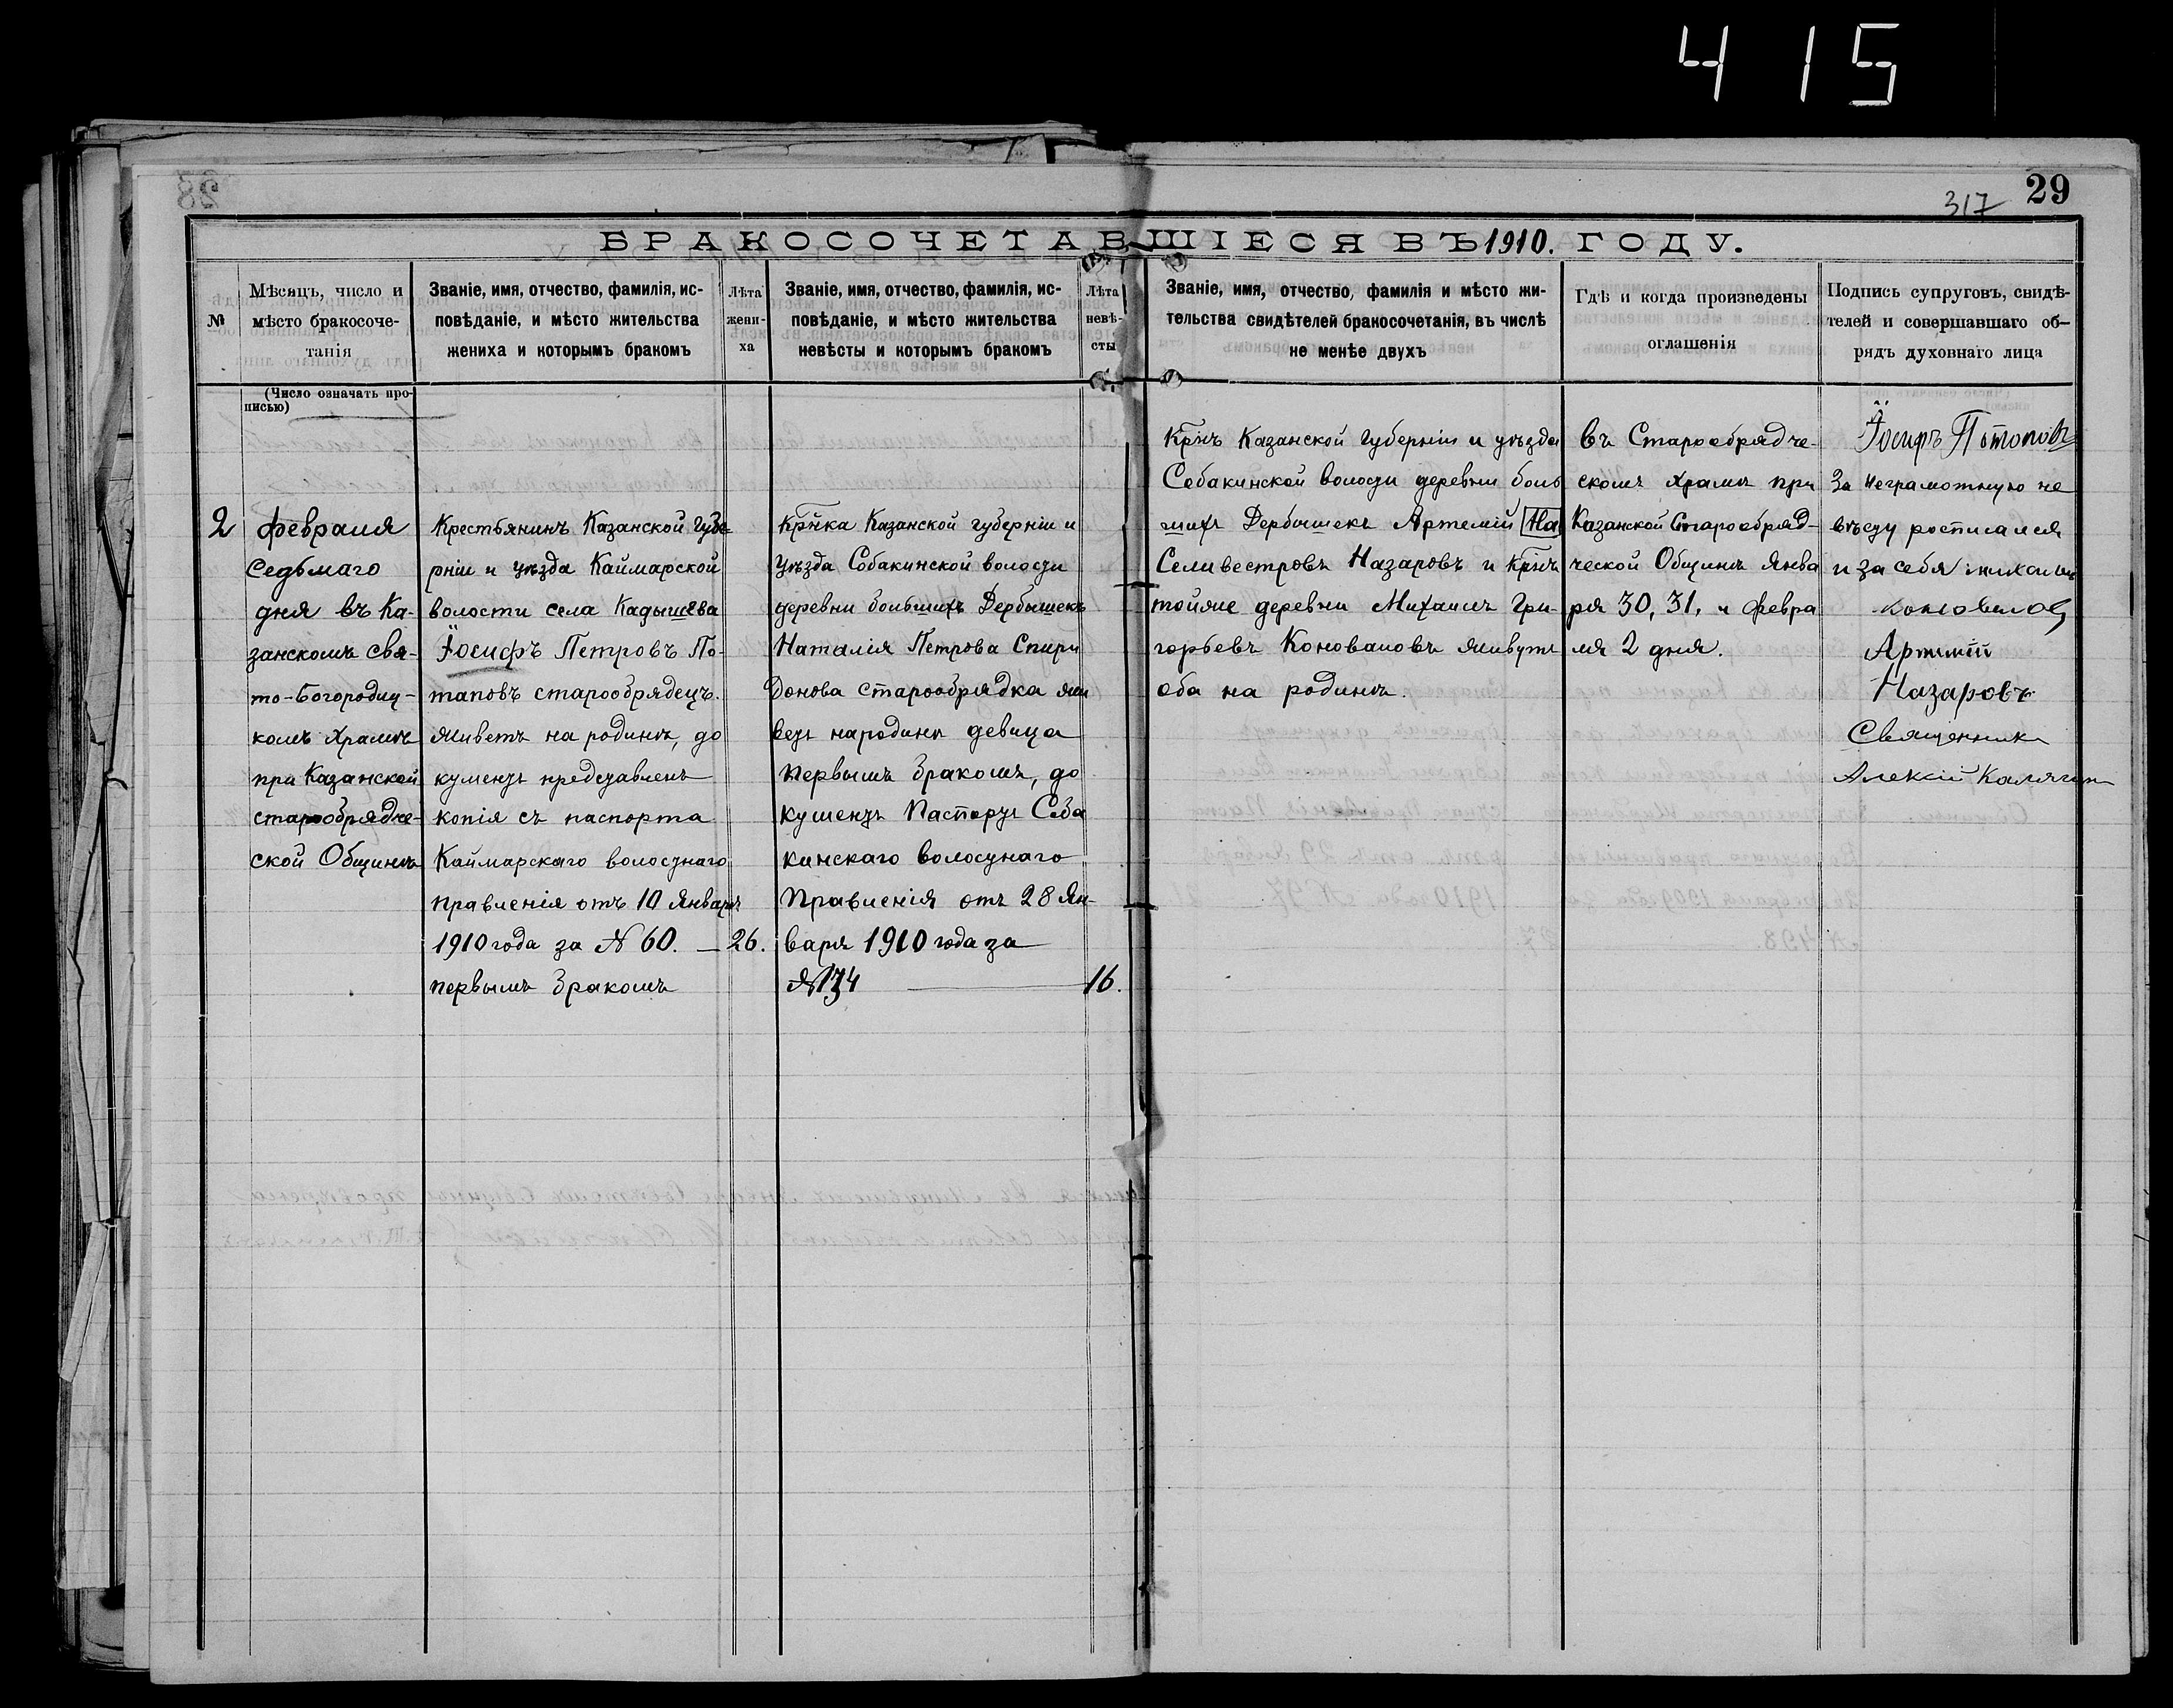 415
317 29
БРАКОСОЧЕТАВШІЕСЯ ВЪ 1910. ГОДУ.
№
Мѣсяцъ, число и
мѣсто бракосоче-
танія
Званіе, имя, отчество, фамилія, ис-
повѣданіе, и мѣсто жительства
жениха и которымъ бракомъ
Лѣта
жени-
ха
Званіе, имя, отчество, фамилія, ис-
повѣданіе, и мѣсто жительства
невѣсты и которымъ бракомъ
Лѣта
невѣ-
сты
Званіе, имя, отчество, фамилія и мѣсто жи-
тельства свидѣтелей бракосочетанія, въ числѣ
не менѣе двухъ
Гдѣ и когда произведены
оглашенія
Подпись супруговъ, свидѣ-
телей и совершавшаго об-
рядъ духовнаго лица
(Число означать про-
писью)
2
февраля
Седьмаго
дня въ Ка-
занскомъ свя-
то-Богородиц-
комъ храмѣ
при Казанской
старообрядче-
ской Общинѣ
Крестьянинъ Казанской Губе
рніи и уѣзда Каймарской
волости села Кадышева
Іосифъ Петровъ По-
таповъ старообрядецъ.
живетъ на родинѣ, до
кументъ представленъ
копія съ паспорта
Каймарскаго волостнаго
правленія отъ 10 Января
1910 года за № 60. — 26.
первымъ бракомъ
Кр̃нка Казанской губерніи и
уѣзда Собакинской волости
деревни большихъ Дербышекъ
Наталія Петрова Спири
Донова старообрядка жи
ветъ народинѣ девица
первымъ бракомъ, до
кументъ Паспортъ Соба
кинскаго волостнаго
Правленія отъ 28 Ян-
варя 1910 года за
№ 134 16.
Кр̃нъ Казанской губерніи и уѣзда
Собакинской волости деревни боль
шихъ Дербышекъ Артемій На
Селивестровъ Назаровъ и Кр̃нъ
тойже деревни Михаилъ Гри-
горьевъ Коноваловъ живутъ
оба на родинѣ.
въ Старообрядче-
скомъ храмѣ при
Казанской Старообряд-
ческой Общинѣ Янва
ря 30, 31, и февра
ля 2 дня.
Іосифъ Потоповъ
За неграмотную не
вѣсту росписался
и за себя михаилъ
Коновалов
Артимій
Назаровъ
Священникъ
Алексій Калягин